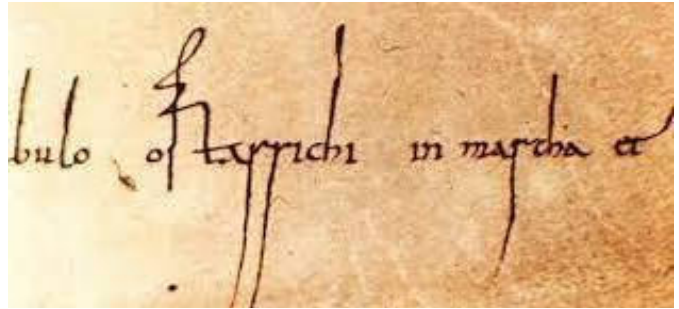 bulo ostarrichi in marcha et